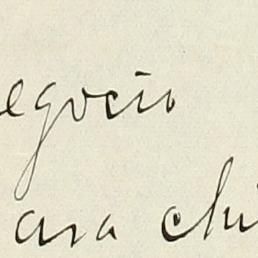 egocio
ara chi